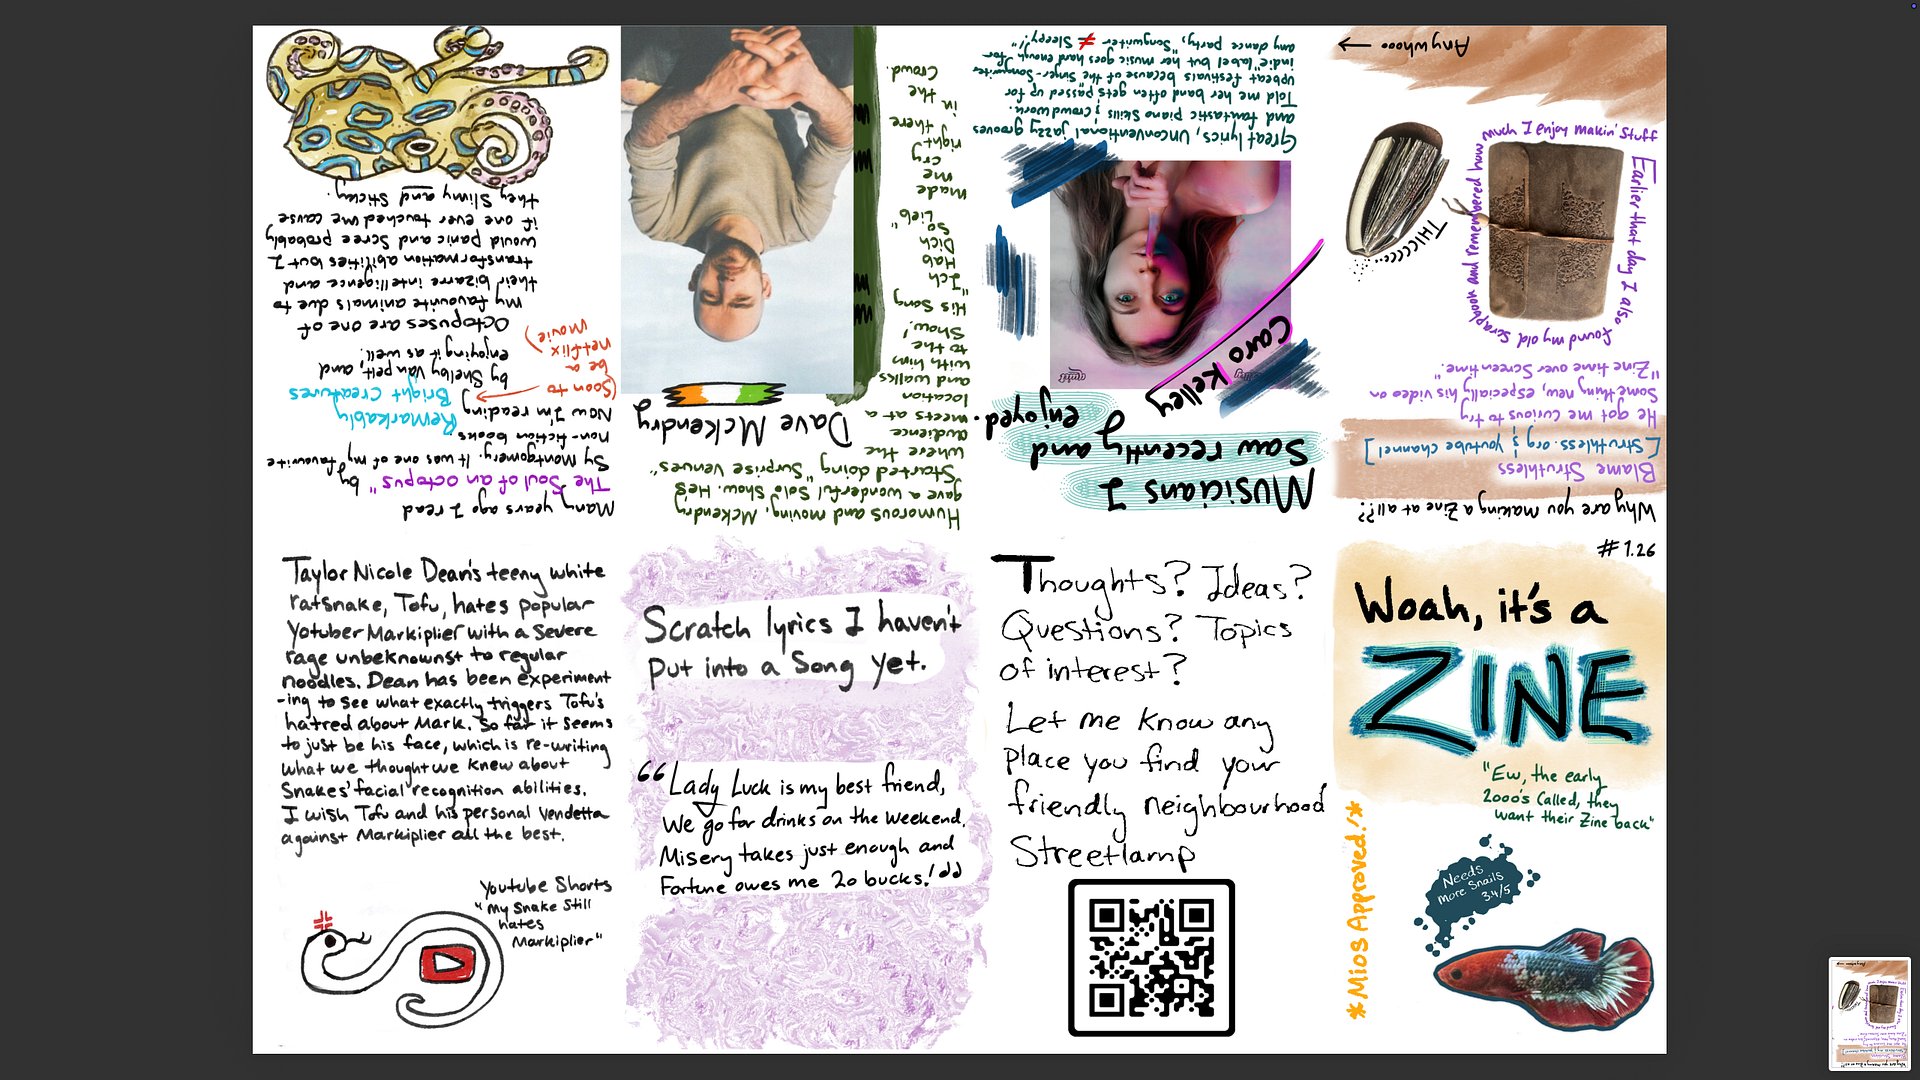 #1.26
Woah, it's a
ZINE
"Ew, the early
2000's Called, they
want their Zine back"
*Mios Approved!*
Needs
more Snails
3.4/5
Why are you making a Zine at all??
Blame Struthless
[Struthless.org & youtube channel]
He got me curious to try
Something new, especially his video on
"Zine time over Screen time."
Earlier that day I also
found my old
scrapbook and remembered how
much I enjoy makin' stuff
THICCC...
Anywhooo
Musicians I
Saw recently and
enjoyed.
Caro Kelley
Great lyrics, Unconventional jazzy grooves
and fantastic piano skills & crowdwork.
Told me her band often gets "passed" up for
upbeat festivals because of the Singer-Songwriter
indie" label but her music goes hard enough for
any dance party, "Songwriter ≠ Sleepy!"
Humorous and moving, McKendry
gave a wonderful Solo Show. He's
Started doing "Surprise Venues"
where the
audience
meets at a
location
and walks
with him
to the
Show!
His Song
"Ich
Hab
Dich
So
Lieb"
made
me
cry
right
there
in
the
Crowd.
Dave McKendry
Many years ago I read
"The Soul of an octopus" by
Sy Montgomery. It was one of my favourite
non-fiction books
Now I'm reading
Remarkably
Bright Creatures
by Shelby Van pelt, and
enjoying it as well.
(Soon to
be a
netflix
movie)
Octopuses are one of
my favourite animals due to
their bizarre intelligence and
transformation abilities but I
would panic and Scree probably
if one ever touched me cause
they Slimy and Sticky.
Taylor Nicole Dean's teeny white
ratsnake, Tofu, hates popular
Yotuber Markiplier with a Severe
rage unbeknownst to regular
noodles. Dean has been experiment
-ing to see what exactly triggers Tofu's
hatred about Mark. So far it seems
to just be his face, which is re-writing
what we thought we knew about
Snakes' facial recognition abilities.
I wish Tofu and his personal vendetta
against Markiplier all the best.
Youtube Shorts
"My Snake Still
hates
Markiplier"
Scratch lyrics I haven't
put into a Song yet.
"Lady Luck is my best friend,
We go for drinks on the weekend,
Misery takes just enough and
Fortune owes me 20 bucks!"
Thoughts? Ideas?
Questions? Topics
of interest?
Let me know any
place you find your
friendly neighbourhood
Streetlamp